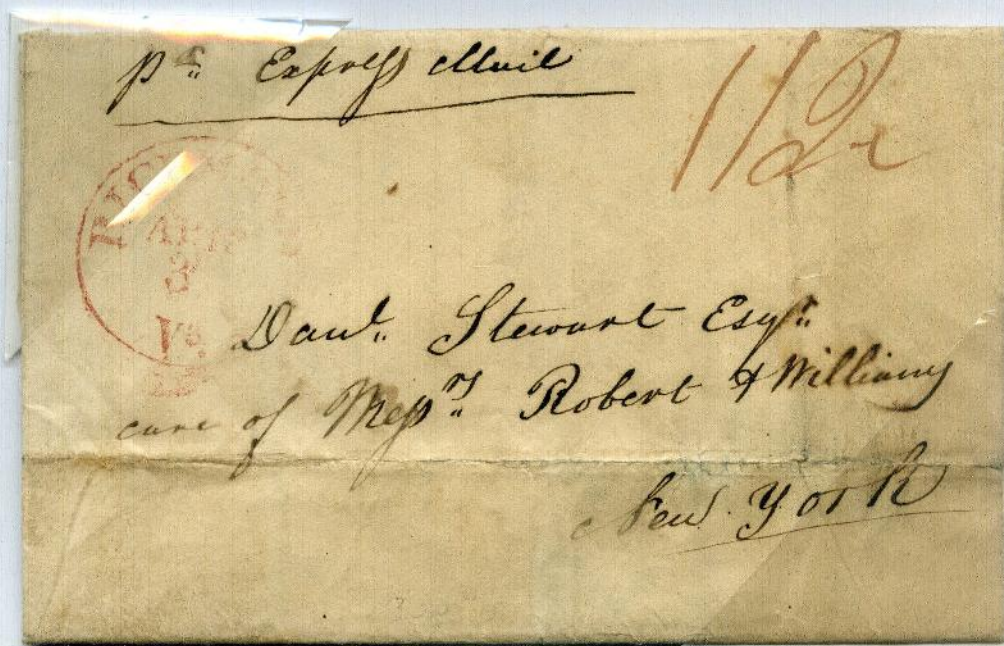 pr Express Mail
112
RICHMOND
APR
3
Va.
Danl. Stewart Esqr.
care of Messrs. Robert & Williams
New York